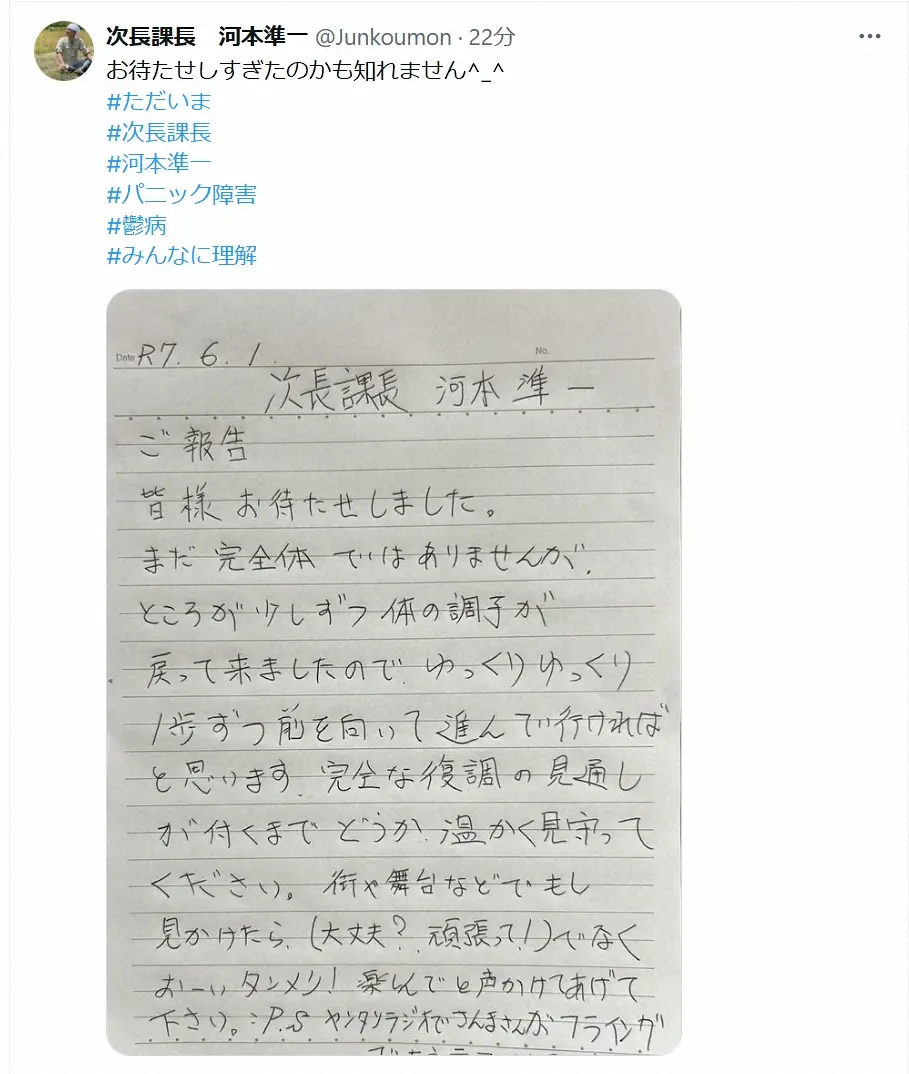 次長課長　河本準一 @Junkoumon · 22分
お待たせしすぎたのかも知れません^_^
#ただいま
#次長課長
#河本準一
#パニック障害
#鬱病
#みんなに理解
Date R7. 6. 1. No.
次長課長 河本準一
ご報告
皆様お待たせしました。
まだ完全体ではありませんが、
ところが少しずつ体の調子が
戻って来ましたので、ゆっくりゆっくり
1歩ずつ前を向いて進んで行ければ
と思います。完全な復調の見通し
が付くまでどうか、温かく見守って
ください。街や舞台などでもし
見かけたら、(大丈夫?、頑張って!)でなく
おーいタンメン!楽しんでと声かけてあげて
下さい。:P.S ヤンタンラジオでさんまさんがフライングが